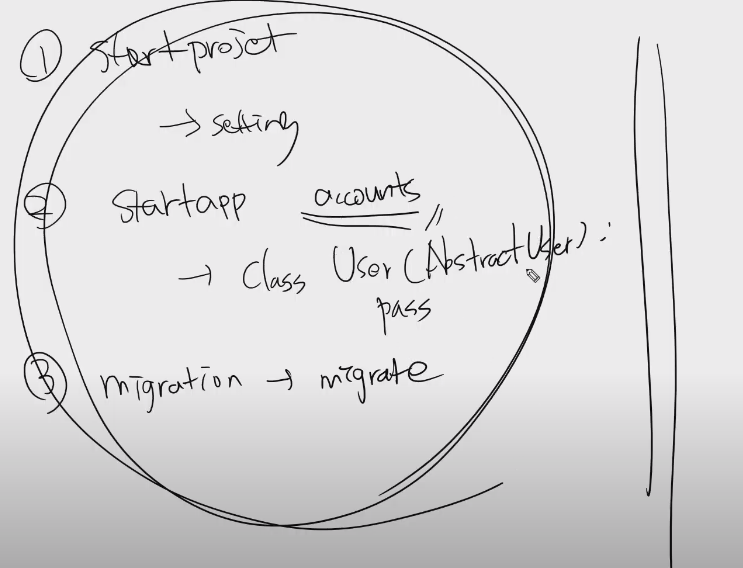 ① startprojet
→ setting
② startapp accounts
→ class User (AbstractUser) :
pass
③ migration → migrate